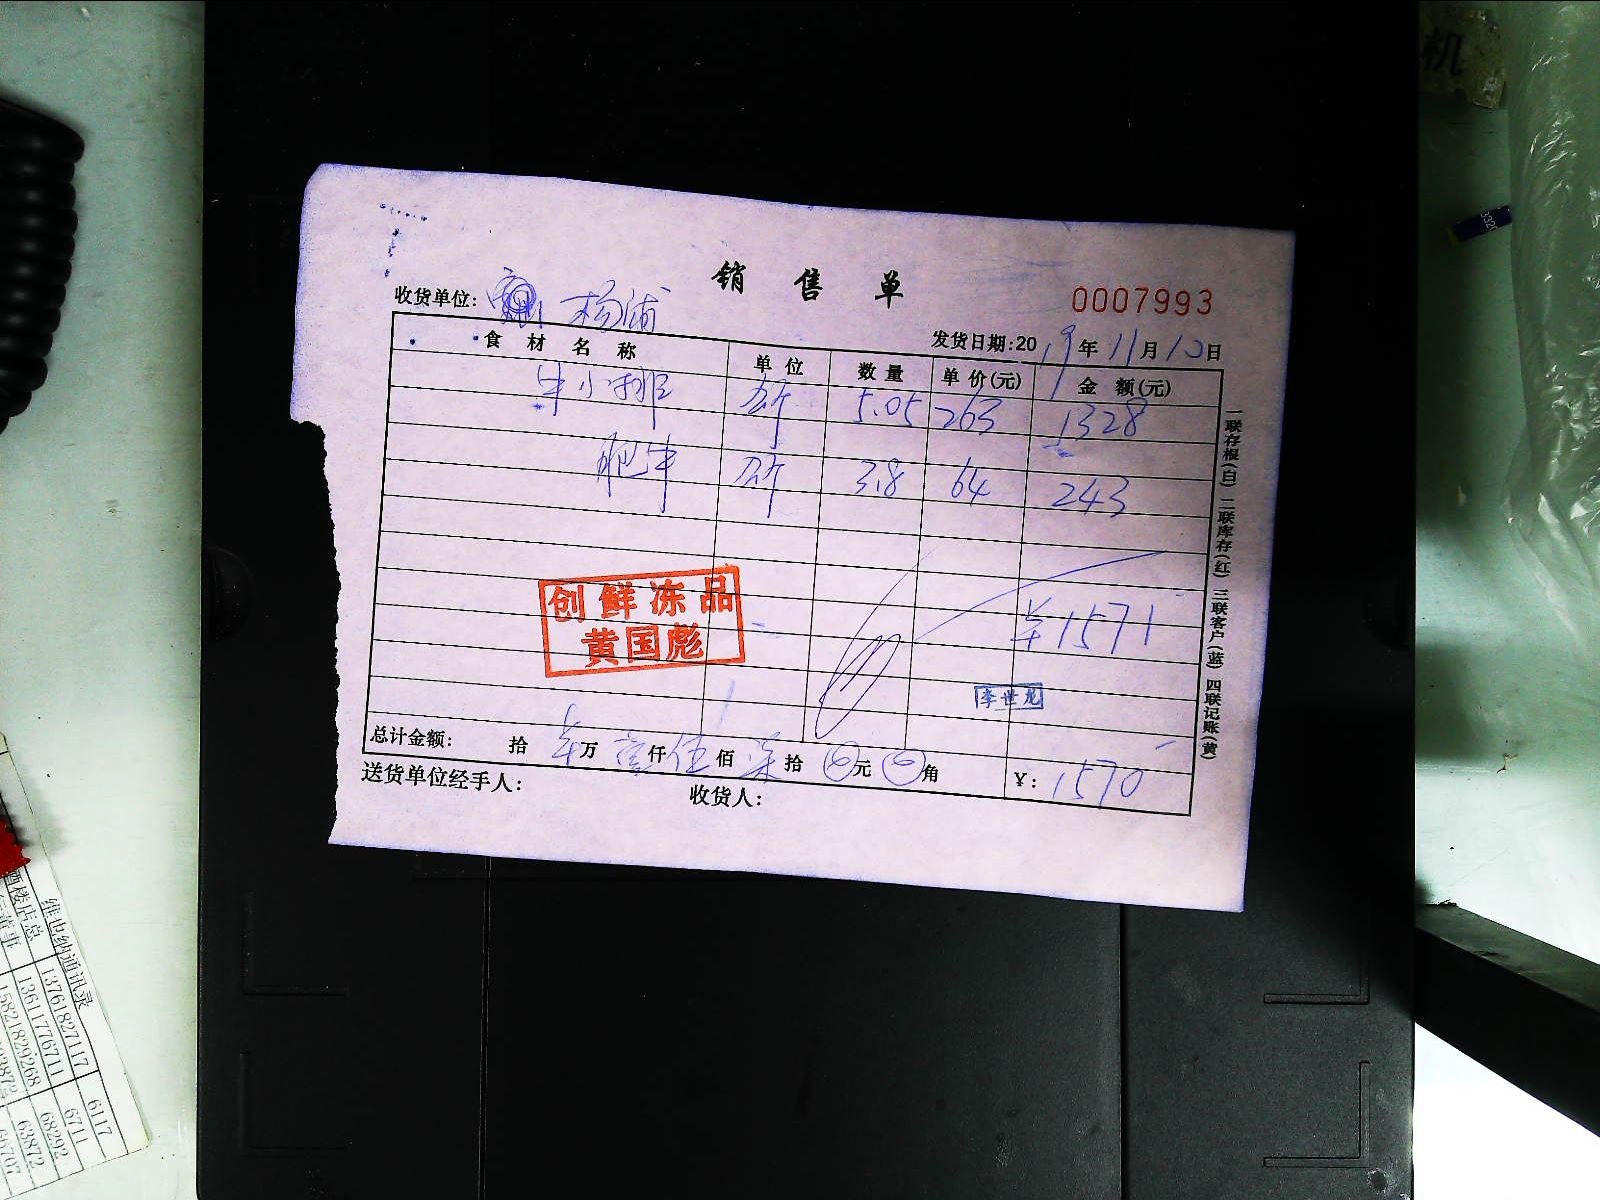 销售单
0007993
收货单位: 杨浦
发货日期:2019年11月10日
食材名称 单位 数量 单价(元) 金额(元)
牛小排 斤 5.05 263 1328
肥牛 斤 3.8 64 243
¥1571
创鲜冻品
黄国彪
李世龙
总计金额: 拾 万 壹仟伍佰柒拾 元 角 ¥: 1570
送货单位经手人: 收货人:
一联存根(白) 二联库存(红) 三联客户(蓝) 四联记账(黄)
机
维也纳通讯录
酒楼店总 13761827117 6117
13611776711 6711
15821829268 68292
63872